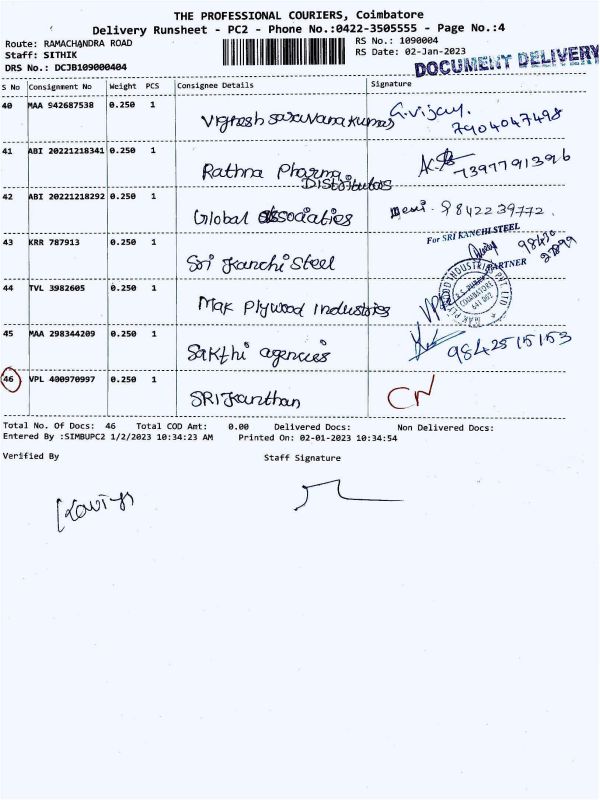 THE PROFESSIONAL COURIERS, Coimbatore
Delivery Runsheet - PC2 - Phone No.:0422-3505555 - Page No.:4
Route: RAMACHANDRA ROAD RS No.: 1090004
Staff: SITHIK RS Date: 02-Jan-2023
DRS No.: DCJB109000404
DOCUMENT DELIVERY
S No Consignment No Weight PCS Consignee Details Signature
40 MAA 942687538 0.250 1 Vignesh Saravanakumar G.Vijay.
7904047498
41 ABI 20221218341 0.250 1 Rathna Pharma
Distributors 7397791396
42 ABI 20221218292 0.250 1 Global Associaties 9842239772.
For SRI KANCHI STEEL
43 KRR 787913 0.250 1 Sri Kanchi Steel
PARTNER
44 TVL 3982605 0.250 1 Mak Plywood Industries
COIMBATORE
641 002
45 MAA 298344209 0.250 1 Sakthi agencies 9842515153
46 VPL 400970997 0.250 1 SRIKanthan CN
Total No. Of Docs: 46 Total COD Amt: 0.00 Delivered Docs: Non Delivered Docs:
Entered By :SIMBUPC2 1/2/2023 10:34:23 AM Printed On: 02-01-2023 10:34:54
Verified By Staff Signature